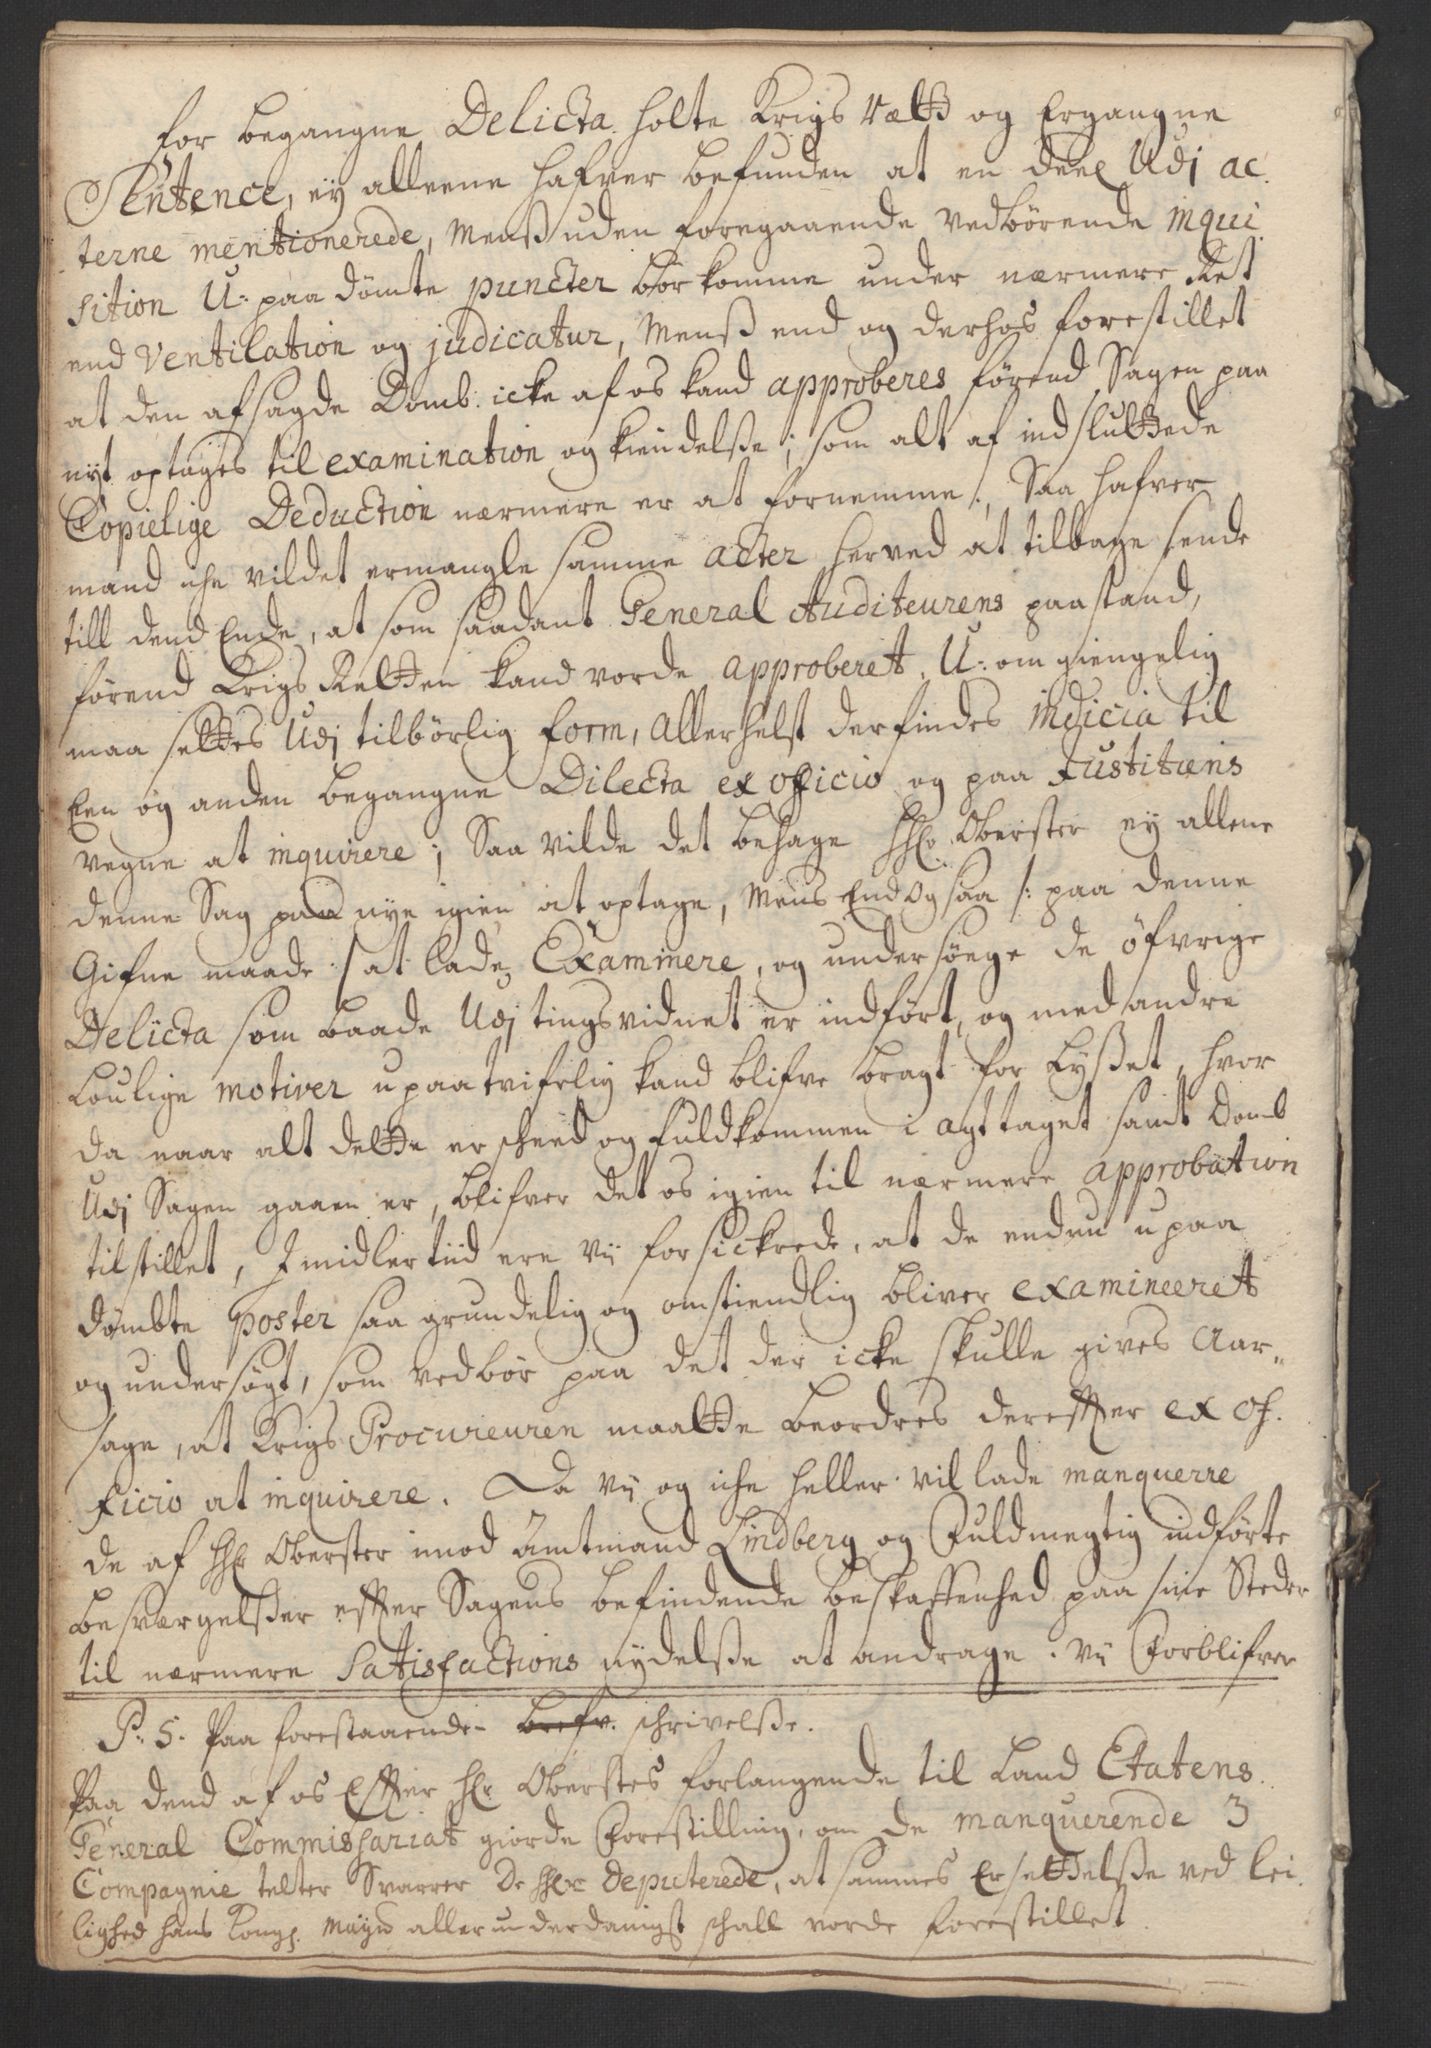 for begangne Delicta holte Krigs Rætt og Ergangne
Sentence, ej alleene hafver befunden at en deel Udj ac
terne mentionerede, Mens uden foregaaende vedbørende inqui
sition U-paadømte puncter bør komme under nærmere Ret
end Ventilation og judicatur, Menß end og derhos forestillet
at den afsagde Domb icke af os kand approberes førend Sagen paa
nyt optages til examination og kiendelße; som alt af indsluttede
Copielige Deduction nærmere er at fornemme; Saa hafver
mand iche vildet ermangle samme acter herved at tilbage sende
till dend Ende, at som saadant General Auditeurens paastand,
førend Krigs Retten kand vorde approberet, U-omgiengelig
maa settes Udj tilbørlig form, allerhelst der findes indicia til
Een og anden begangne Dilecta ex officio og paa Justitiens
vegne at inquirere; Saa vilde det behage Hr. Oberster ej allene
denne Sag paa nye igien at optage, Mens End og saa /: paa denne
Gifne maade :/ at lade Examinere, og undersøege de øfvrige
Delicta som baade Udj tingsvidnet er indført, og med andre
Loulige motiver upaatvifelig kand blifve bragt for Lyßet, hvor
da naar alt dette er scheed og fuldkommen i agt taget samt Domb
Udj Sagen gaaen er, blifver det os igien til nærmere approbation
tilstillet, Imidlertiid ere Vij forsickrede, at de endnu upaa
dømbte poster saa grundelig og omstiendlig bliver examineeret
og undersøgt, som vedbør paa det der icke skulle gives Aar„
sage, at Krigs Procureuren maatte beordres derefter ex of
ficio at inquirere. Da vij og iche heller vil lade manquerre
de af Hr Oberster imod Amtmand Lindberg og Fuldmegtig indførte
besværgelßer efter Sagens befindende beskaffenhed paa sine Steder
til nærmere Satisfactions nydelße at andrage. Vij Forblifver
P. S. Paa forestaaende brefv. schrivelße.
Paa dend af os Efter Hr Oberstes forlangende til Land Etatens
General Commissariat giorde Forestilling, om de manquerende 3
Compagnie telter Svarrer De Hrr Deputerede, at sammes Ersettelße ved lei
lighed hans Kongl. Mayst allerunderdanigst schall vorde forestillet.